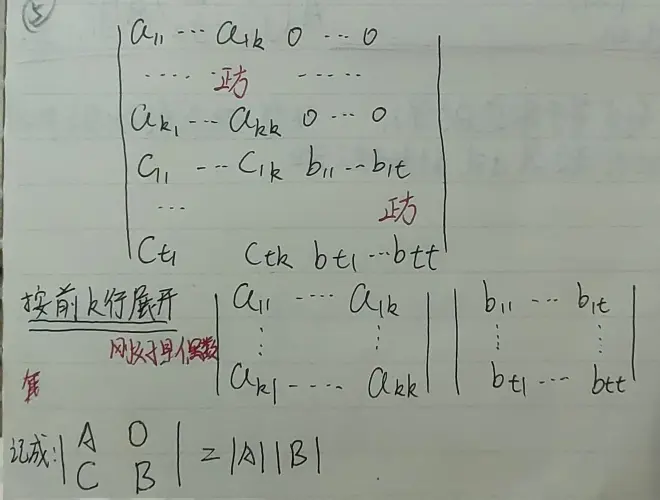 ⑤
a₁₁ ⋯ a₁ₖ 0 ⋯ 0
⋯⋯ 正方 ⋯⋯
aₖ₁ ⋯ aₖₖ 0 ⋯ 0
C₁₁ ⋯ C₁ₖ b₁₁ ⋯ b₁t
⋯ 正方
Ct₁ Ctk bt₁ ⋯ btt
按前k行展开 | a₁₁ ⋯ a₁ₖ | | b₁₁ ⋯ b₁t |
⋮ ⋮ ⋮ ⋮
aₖ₁ ⋯ aₖₖ | | bt₁ ⋯ btt |
偶数
记成: | A O |
| C B | = |A| |B|